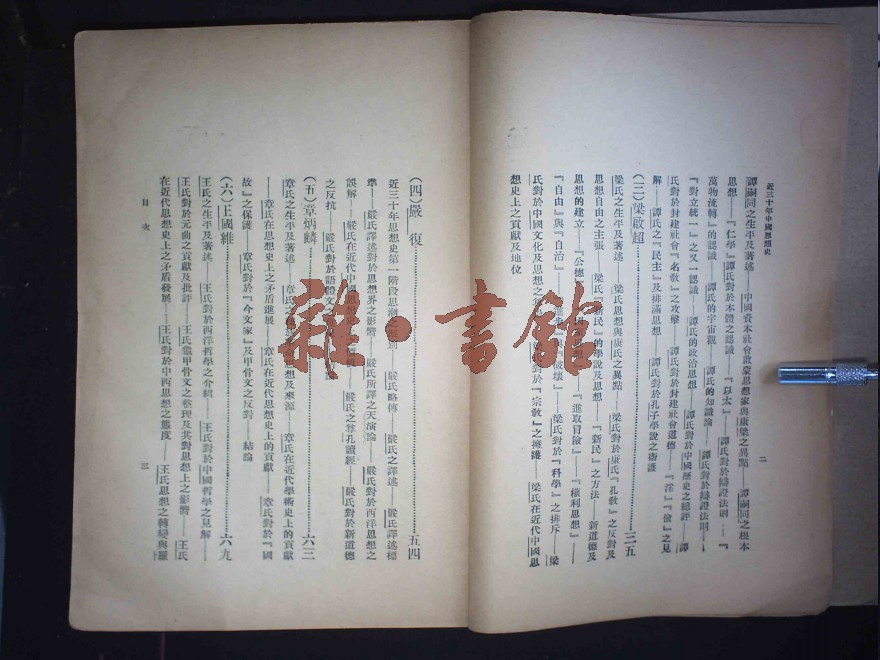 近三十年中國思想史
二
譚嗣同之生平及著述——中國資本社會啟蒙思想家與康梁之異點——譚嗣同之根本
思想——『仁學』譚氏對於本體之認識——『以太』——譚氏對於辯證法則——『
萬物流轉』的認識——譚氏的宇宙觀——譚氏的知識論——譚氏對於辯證法則——
『對立統一』之又一認識——譚氏的政治思想——譚氏對於中國歷史之總評——譚
氏對於封建社會『名教』之攻擊——譚氏對於封建社會道德——『淫』『儉』之見
解——譚氏之『民主』及排滿思想——譚氏對於孔子學說之衛護
(三)梁啟超……三五
梁氏之生平及著述——梁氏思想與康氏之異點——梁氏對於康氏『孔教』之反對及
思想自由之主張——梁氏『新民』的學說及思想——『新民』之方法——新道德及
思想的建立——『公德』思想——『進取冒險』——『權利思想』——
『自由』與『自治』破壞』——梁氏對於『科學』之排斥——梁
氏對於中國文化及思想之對於『宗教』之擁護——梁氏在近代中國思
想史上之貢獻及地位
(四)嚴復……五四
近三十年思想史第一階段思潮之——嚴氏略傳——嚴氏之譯述——嚴氏譯述標
準——嚴氏譯述對於思想界之影響——嚴氏所譯之天演論——嚴氏對於西洋思想之
誤解——嚴氏在近代中國思——嚴氏之尊孔讀經——嚴氏對於新道德
之反抗——嚴氏對於語體文之論
(五)章炳麟……六三
章氏之生平及著述——章氏之思想及來源——章氏在近代學術史上的貢獻
——章氏在思想史上之矛盾進展——章氏在近代思想史上的貢獻——章氏對於『國
故』之保護——章氏對於『今文家』及甲骨文之反對——結論
(六)王國維……六九
王氏之生平及著述——王氏對於西洋哲學之介紹——王氏對於中國哲學之見解——
王氏對於元曲之貢獻及批評——王氏龜甲骨文之整理及其對思想上之影響——王氏
在近代思想史上之矛盾發展——王氏對於中西思想之態度——王氏思想之轉變與羅
目次
三
雜·書館